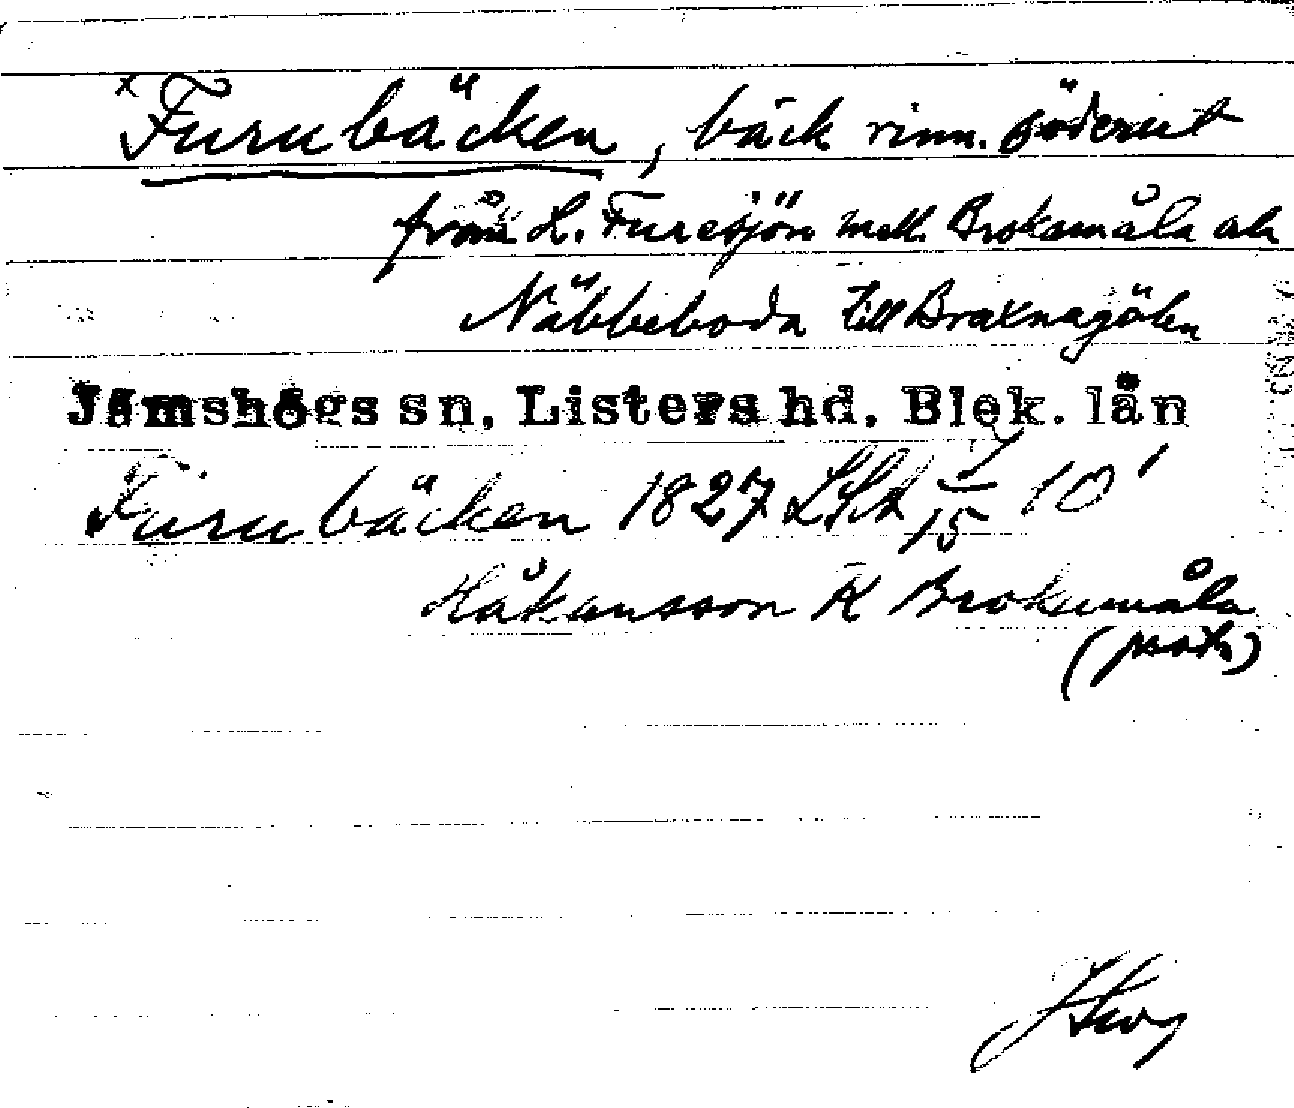 x Furubäcken, bäck rinn. söderut
från L. Furesjön mell. Broksmåla och
Näbbeboda till Braxnagölen
Jämshögs sn, Listers hd. Blek. län
Furubäcken 1827 LSA 15 10'
Håkansson K Broksmåla